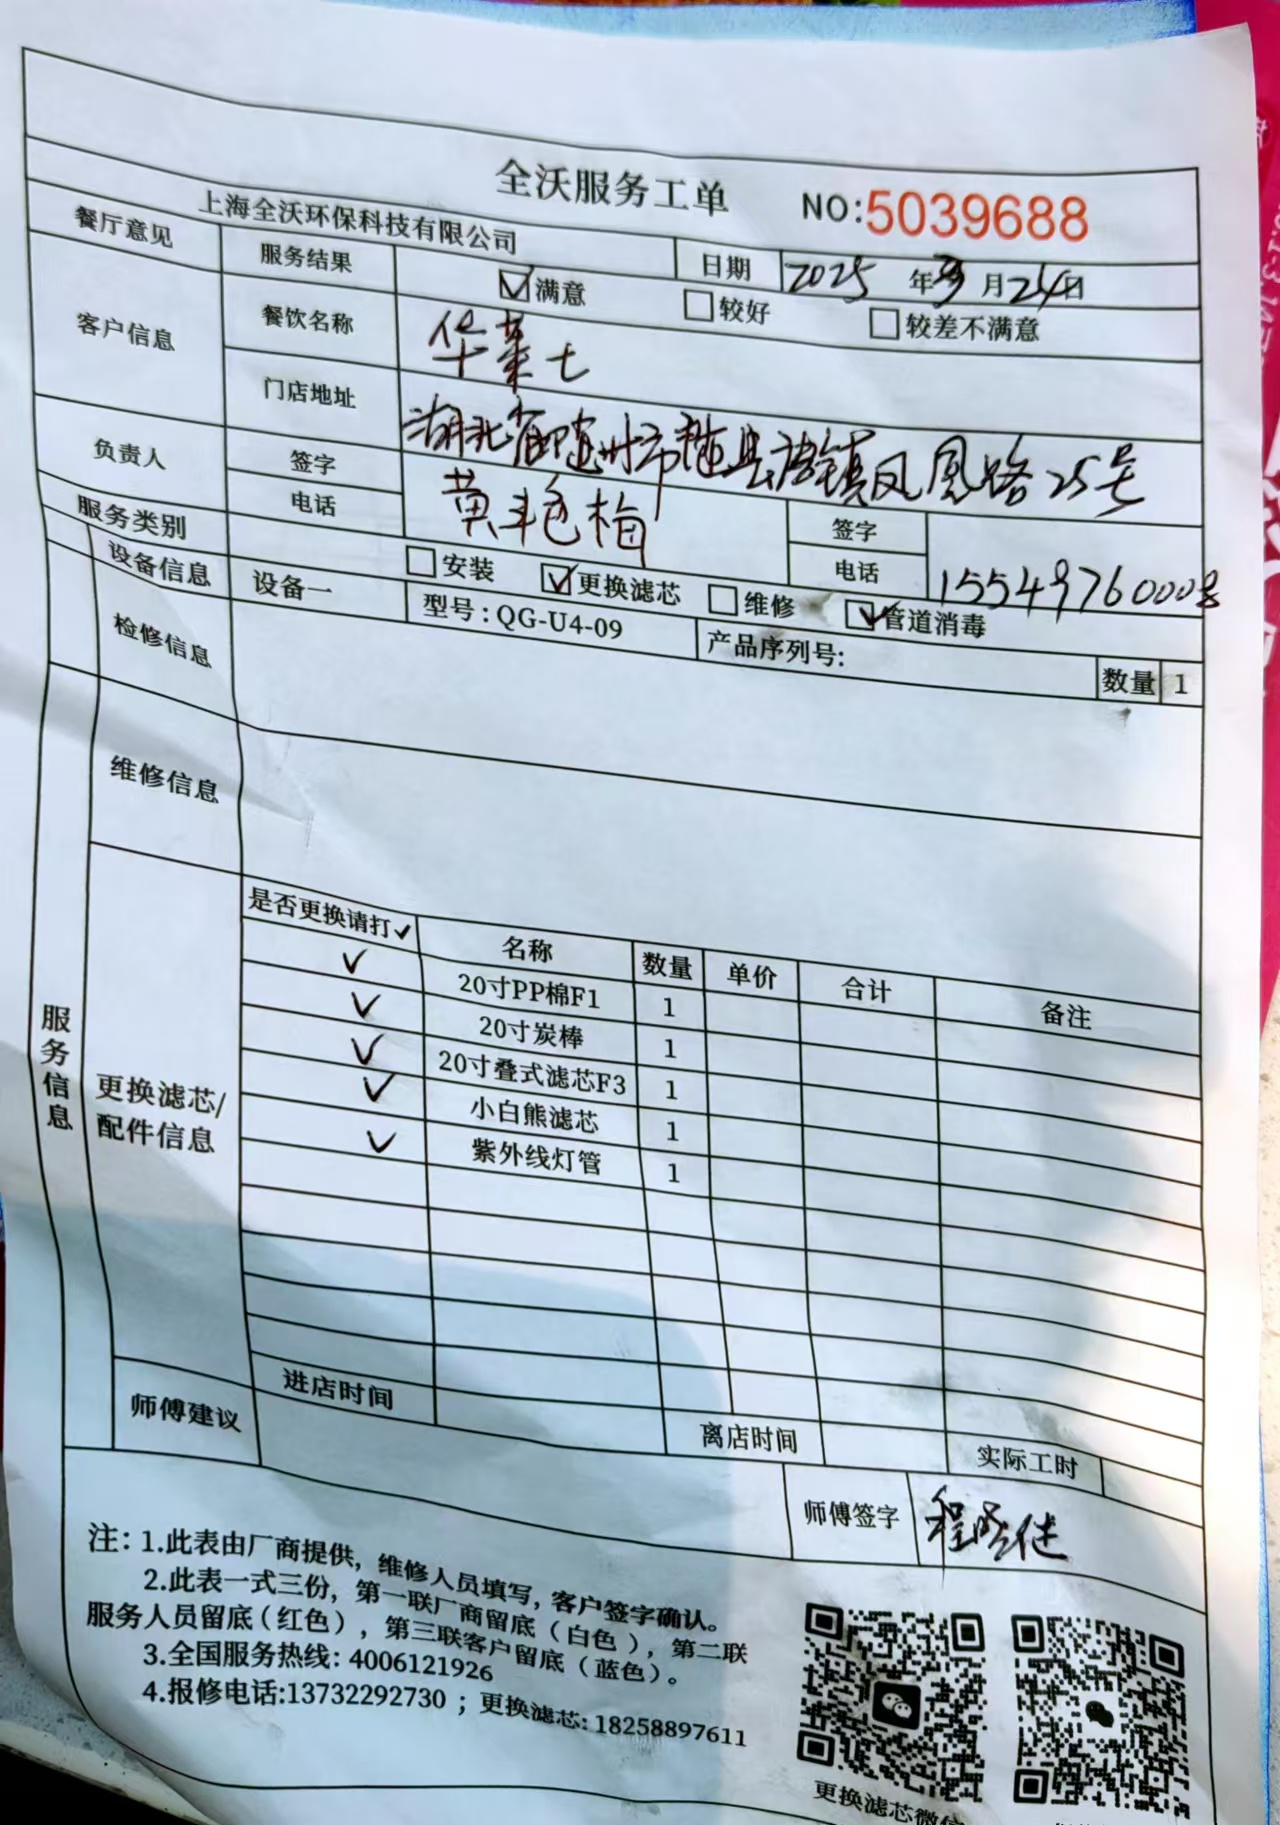 全沃服务工单 NO:5039688
上海全沃环保科技有限公司 日期 2025 年 月 24 日
餐厅意见 服务结果 ☑满意 □较好 □较差不满意
客户信息 餐饮名称 华莱士
门店地址 湖北省随州市随县 镇凤凰路25号
负责人 签字 黄艳梅 签字
电话 电话 155497600
服务类别 □安装 ☑更换滤芯 □维修 ☑管道消毒
设备信息 设备一 型号:QG-U4-09 产品序列号: 数量 1
检修信息
维修信息
服务信息
更换滤芯/
配件信息
是否更换请打✓ 名称 数量 单价 合计 备注
✓ 20寸PP棉F1 1
✓ 20寸炭棒 1
✓ 20寸叠式滤芯F3 1
✓ 小白熊滤芯 1
✓ 紫外线灯管 1
进店时间 离店时间 实际工时
师傅建议 师傅签字 程
注: 1.此表由厂商提供, 维修人员填写, 客户签字确认。
2.此表一式三份, 第一联厂商留底(白色), 第二联
服务人员留底(红色), 第三联客户留底(蓝色)。
3.全国服务热线: 4006121926
4.报修电话:13732292730 ; 更换滤芯: 18258897611
更换滤芯微信